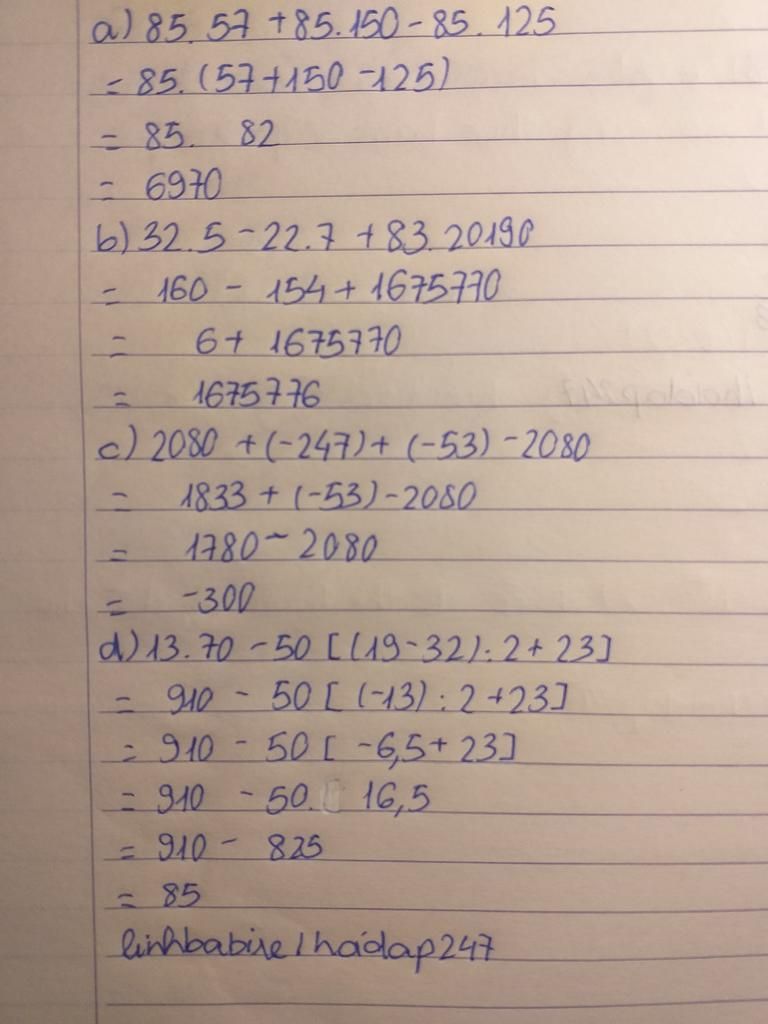 a) 85.57 + 85.150 - 85.125
= 85.(57+150-125)
= 85. 82
= 6970
b) 32.5 - 22.7 + 83.20190
= 160 - 154 + 1675770
= 6 + 1675770
= 1675776
c) 2080 + (-247) + (-53) - 2080
= 1833 + (-53) - 2080
= 1780 - 2080
= -300
d) 13.70 - 50 [(19-32):2 + 23]
= 910 - 50 [(-13) : 2 + 23]
= 910 - 50 [-6,5 + 23]
= 910 - 50. 16,5
= 910 - 825
= 85